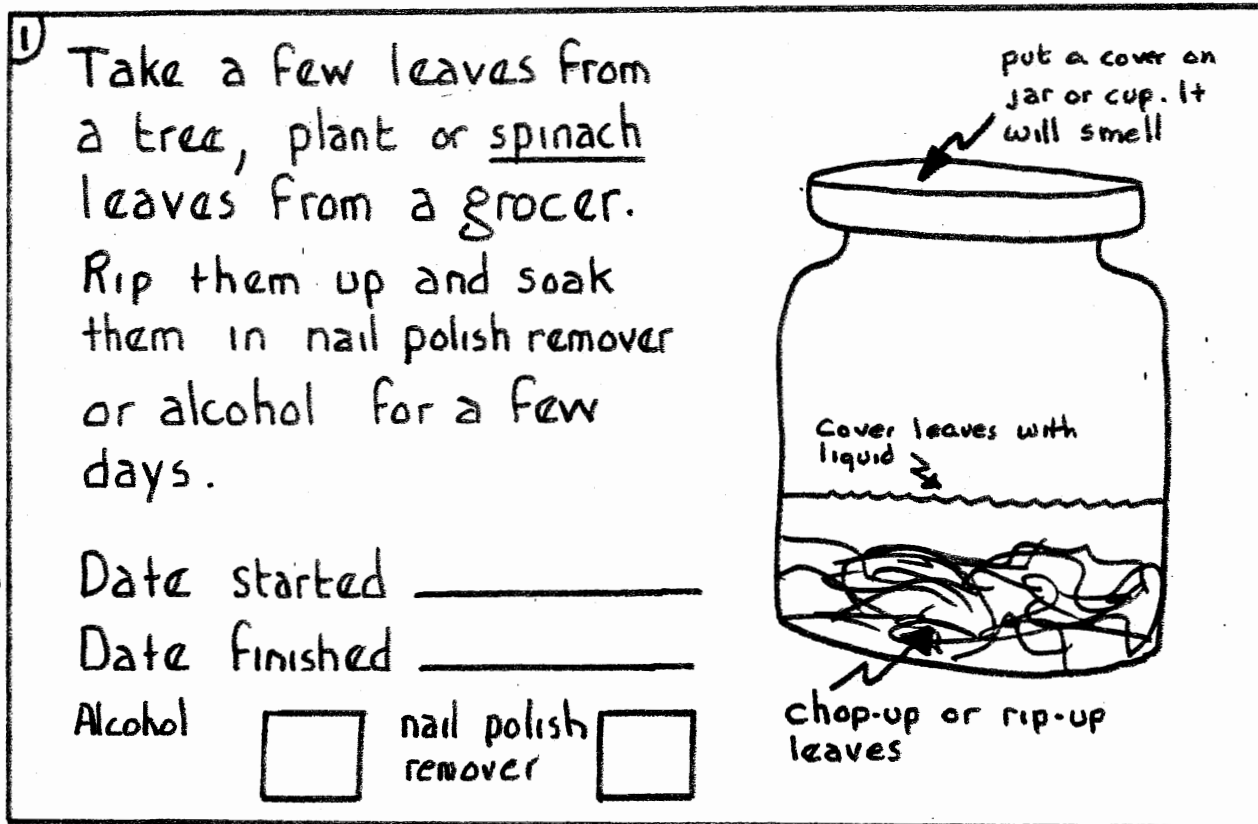 1
Take a few leaves from
a tree, plant or spinach
leaves from a grocer.
Rip them up and soak
them in nail polish remover
or alcohol for a few
days.
Date started
Date finished
Alcohol
nail polish
remover
put a cover on
jar or cup. It
will smell
Cover leaves with
liquid
chop-up or rip-up
leaves